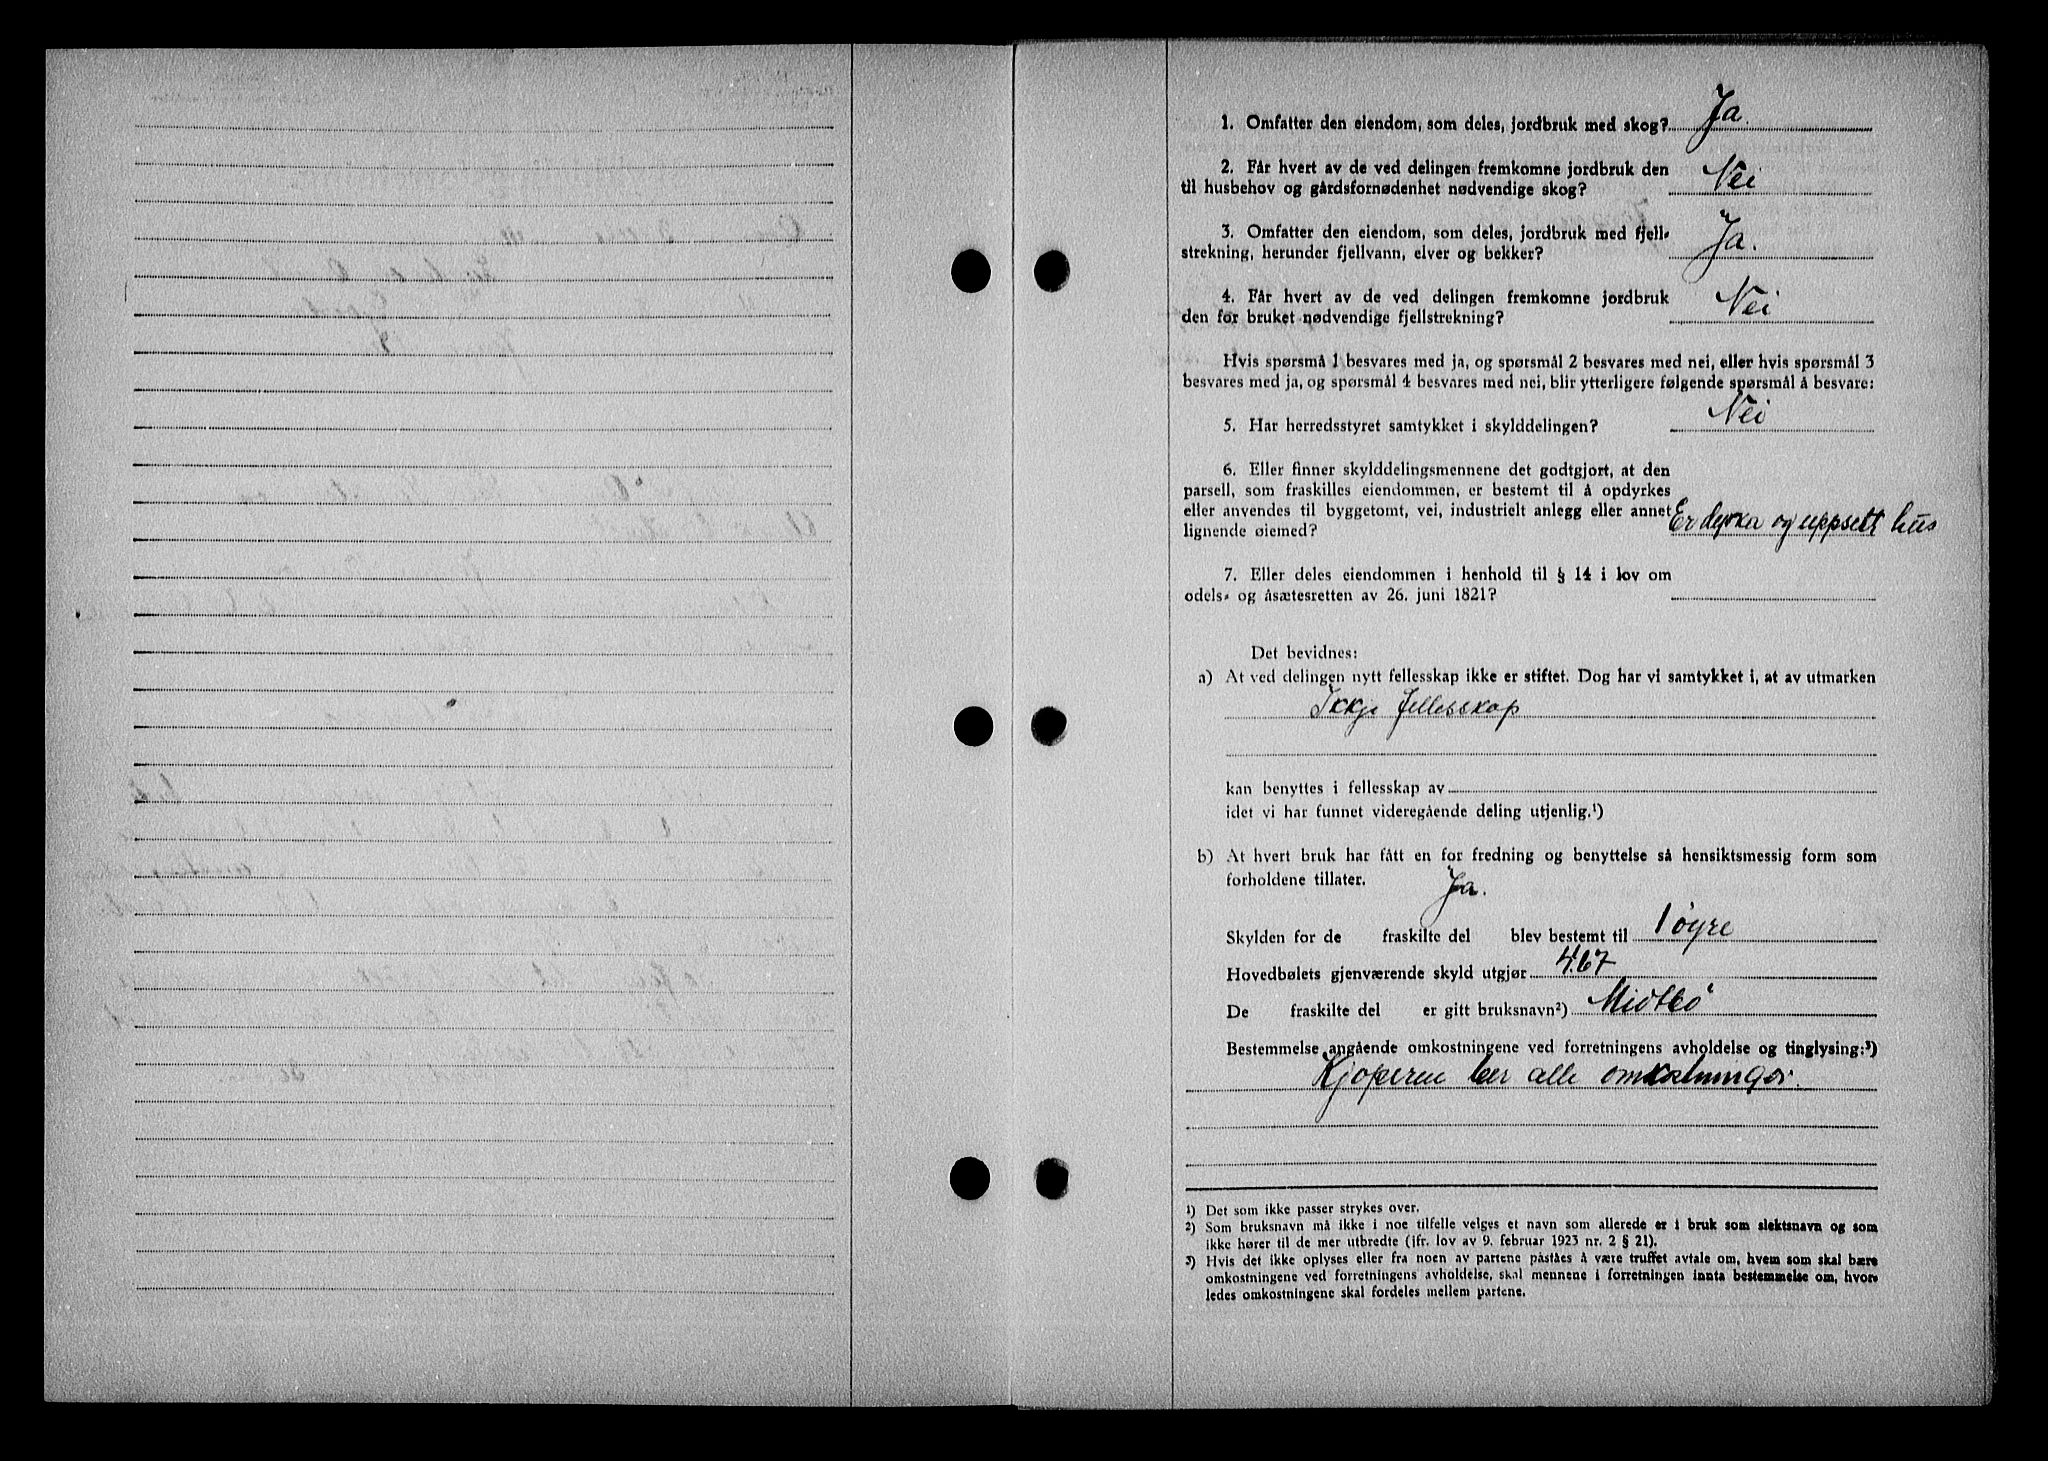 1. Omfatter den eiendom, som deles, jordbruk med skog? Ja.
2. Får hvert av de ved delingen fremkomne jordbruk den
til husbehov og gårdsfornødenhet nødvendige skog? Nei
3. Omfatter den eiendom, som deles, jordbruk med fjell-
strekning, herunder fjellvann, elver og bekker? Ja.
4. Får hvert av de ved delingen fremkomne jordbruk
den for bruket nødvendige fjellstrekning? Nei
Hvis spørsmå 1 besvares med ja, og spørsmål 2 besvares med nei, eller hvis spørsmål 3
besvares med ja, og spørsmål 4 besvares med nei, blir ytterligere følgende spørsmål å besvare:
5. Har herredsstyret samtykket i skylddelingen? Nei
6. Eller finner skylddelingsmennene det godtgjort, at den
parsell, som fraskilles eiendommen, er bestemt til å opdyrkes
eller anvendes til byggetomt, vei, industrielt anlegg eller annet
lignende øiemed? Er dyrka og uppsett hus
7. Eller deles eiendommen i henhold til § 14 i lov om
odels- og åsætesretten av 26. juni 1821?
Det bevidnes:
a) At ved delingen nytt fellesskap ikke er stiftet. Dog har vi samtykket i, at av utmarken
Ikkje fellesskap
kan benyttes i fellesskap av
idet vi har funnet videregående deling utjenlig.¹)
b) At hvert bruk har fått en for fredning og benyttelse så hensiktsmessig form som
forholdene tillater. Ja.
Skylden for de fraskilte del blev bestemt til 1 øyre
Hovedbølets gjenværende skyld utgjør 4.67
De fraskilte del er gitt bruksnavn²) Midtbø
Bestemmelse angående omkostningene ved forretningens avholdelse og tinglysing:³)
Kjøperen ber alle omkostninger.
¹) Det som ikke passer strykes over.
²) Som bruksnavn må ikke i noe tilfelle velges et navn som allerede er i bruk som slektsnavn og som
ikke hører til de mer utbredte (jfr. lov av 9. februar 1923 nr. 2 § 21).
³) Hvis det ikke oplyses eller fra noen av partene påståes å være truffet avtale om, hvem som skal bære
omkostningene ved forretningens avholdelse, skal mennene i forretningen innta bestemmelse om, hvor-
ledes omkostningene skal fordeles mellem partene.